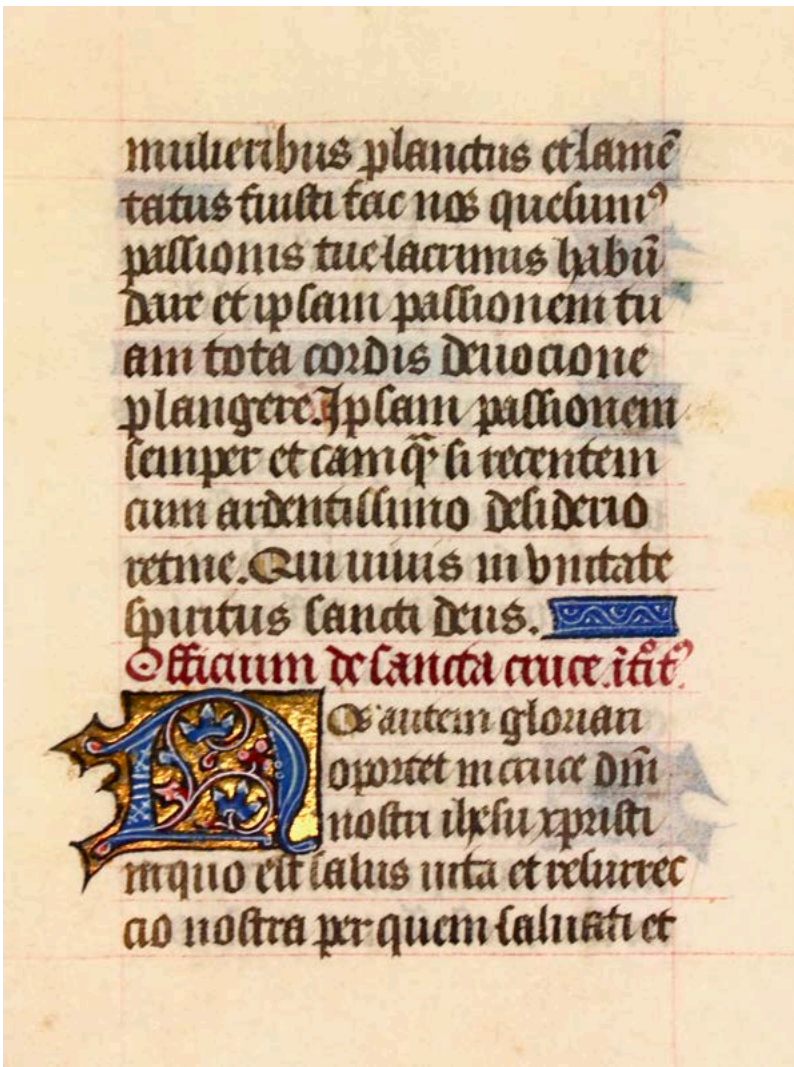 mulieribus planctus et lamē
tatus fuisti fac nos quesumꝰ
passionis tue lacrimis habū
dare et ipsam passionem tu
am tota cordis deuocione
plangere. Ipsam passionem
semper et eam qͣ si recentem
cum ardentissimo desiderio
retine. Qui uiuis in vnitate
spiritus sancti deus.
Officium de sancta cruce.
Nos autem gloriari
oportet in cruce dm̄
nostri ihesu xpristi
in quo est salus uita et resurrec
cio nostra per quem saluati et